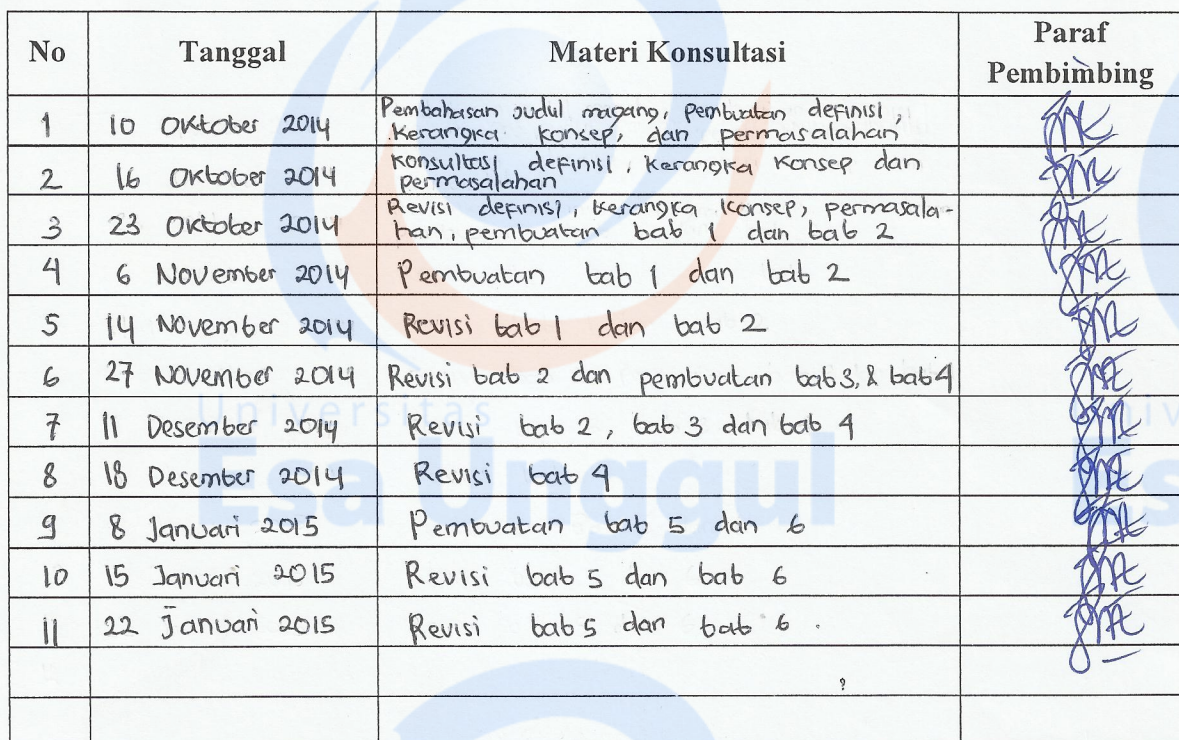 No Tanggal Materi Konsultasi Paraf Pembimbing
1 10 Oktober 2014 Pembahasan judul magang, pembuatan definisi,
kerangka konsep, dan permasalahan
2 16 Oktober 2014 Konsultasi definisi, kerangka konsep dan
permasalahan
3 23 Oktober 2014 Revisi definisi, kerangka konsep, permasala-
han, pembuatan bab 1 dan bab 2
4 6 November 2014 Pembuatan bab 1 dan bab 2
5 14 November 2014 Revisi bab 1 dan bab 2
6 27 November 2014 Revisi bab 2 dan pembuatan bab 3, & bab 4
7 11 Desember 2014 Revisi bab 2, bab 3 dan bab 4
8 18 Desember 2014 Revisi bab 4
9 8 Januari 2015 Pembuatan bab 5 dan 6
10 15 Januari 2015 Revisi bab 5 dan bab 6
11 22 Januari 2015 Revisi bab 5 dan bab 6.
Universitas
Esa Unggul